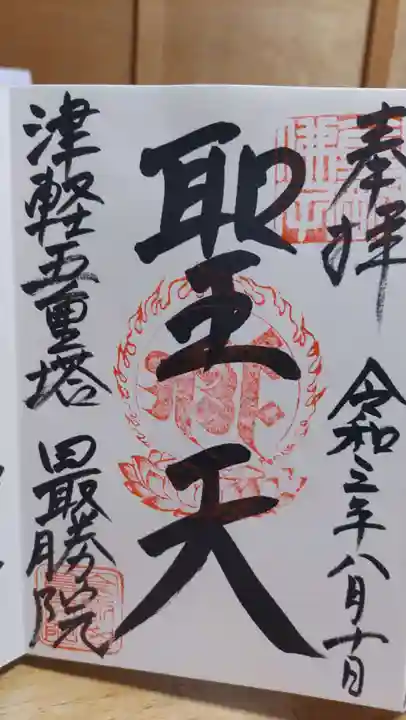 奉拝
令和三年八月十日
聖天
津軽五重塔
最勝院